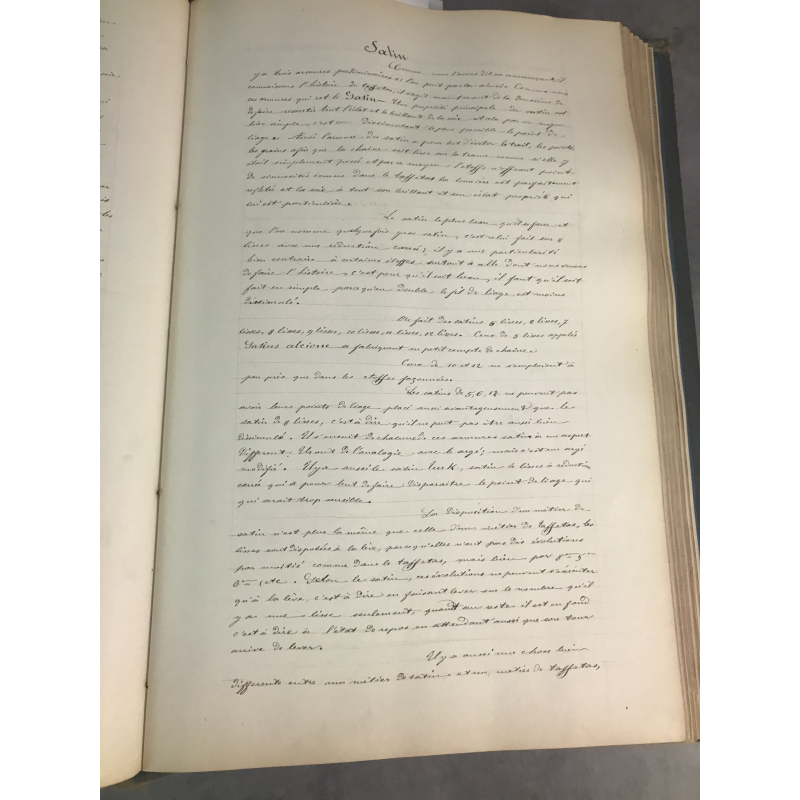 Satin
Comme nous l'avons dit en commençant il
y a trois armures préliminaires si l'on peut parler ainsi. Comme nous
connaissons l'histoire du taffetas, il s'agit maintenant de la deuxième de
ces armures qui est le Satin. Une propriété principale du satin est
de faire ressortir tout l'éclat et le brillant de la soie et cela par un moyen
bien simple, c'est en dissimulant le plus possible le point de
liage. Ainsi l'armure du satin a pour but d'éviter le trait, les points,
les grains afin que la chaîne soit lisse sur la trame comme si elle y
était simplement posée et par ce moyen l'étoffe n'offrant point
de sinuosités comme dans le taffetas la lumière est parfaitement
reflétée et la soie a tout son brillant et son éclat propriété qui
lui est particulière.
Le satin le plus beau qu'il se fasse et
que l'on nomme quelquefois gros satin, c'est celui fait sur 8
lisses avec une réduction carrée; il y a une particularité
bien contraire à certaines étoffes surtout à celle dont nous venons
de faire l'histoire, c'est pour qu'il soit beau, il faut qu'il soit
fait en simple parce qu'en double le fil de liage est moins
dissimulé.
On fait des satins 5 lisses, 6 lisses, 7
lisses, 8 lisses, 9 lisses, 10 lisses, 11 lisses, 12 lisses. Ceux de 5 lisses appelés
Satins alcione se fabriquent en petit compte de chaîne.
Ceux de 10 et 12 ne s'emploient à
peu près que dans les étoffes façonnées.
Les satins de 5, 6, 12 ne peuvent pas
avoir leurs points de liage placé aussi avantageusement que le
satin de 8 lisses, c'est à dire qu'il ne peut pas être aussi bien
dissimulé. Il s'ensuit de chacune de ces armures satin a un aspect
différent; Ils ont de l'analogie avec le sergé; mais c'est un sergé
modifié. Il y a aussi le satin turk, satin 6 lisses à réduction
carrée qui a pour but de faire disparaître le point de liage qui
qui serait trop sensible.
La disposition d'un métier de
satin n'est plus la même que celle d'un métier de taffetas, les
lisses sont disposées à la lève, parce qu'elles n'ont pas des évolutions
par moitié comme dans le taffetas, mais bien par
6me etc. Selon le satin, ces évolutions ne peuvent s'exécuter
qu'à la lève c'est à dire en faisant lever sur le nombre qu'il
y a une lisse seulement, quand au reste il est en fond
c'est à dire à l'état de repos en attendant aussi que son tour
arrive de lever.
Il y a aussi une chose bien
différente entre un métier de satin et un métier de taffetas,